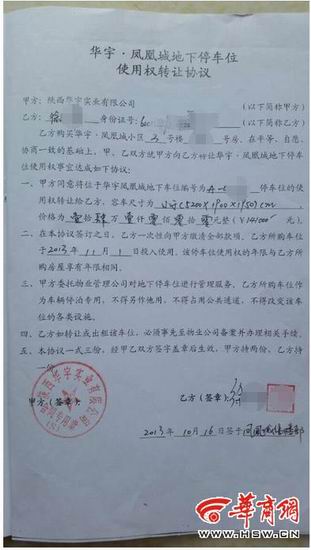 华宇·凤凰城地下停车位
使用权转让协议
甲方：陕西华宇实业有限公司 （以下简称甲方）
乙方： 身份证号： （以下简称乙方）
乙方购买华宇·凤凰城小区3号楼 号房，在平等、自愿、
协商一致的基础上，甲、乙双方就甲方向乙方转让华宇·凤凰城地下停车
位使用权事宜达成如下协议：
一、甲方同意将位于华宇凤凰城地下车位编号为A-6 停车位的使
用权转让给乙方，容车尺寸为 (5200×1900×1950)cm，
价格为壹拾肆万壹仟零佰零拾零元整（￥141000元）。
二、在本协议签订之日，乙方一次性向甲方缴清全部款项。乙方所购车位
于2013年11月1日投入使用，该停车位使用权的年限与乙方所
购房屋享有年限相同。
三、甲方委托物业管理公司对地下停车位进行管理服务，乙方所购车位作
为车辆停泊专用，不得另作他用，不得占用公共通道，不得改变该车位
的各类设施。
四、乙方如转让或出租该车位，必须事先至物业公司备案并办理相关手续。
五、本协议一式三份，经甲乙双方签字盖章后生效，甲方持两份，乙方持
一份。
甲方（签章）： 乙方（签章）：
陕西华宇实业有限公司
合同专用章
2013年10月16日签于凤凰城销售部
华商网
WWW.HSW.CN